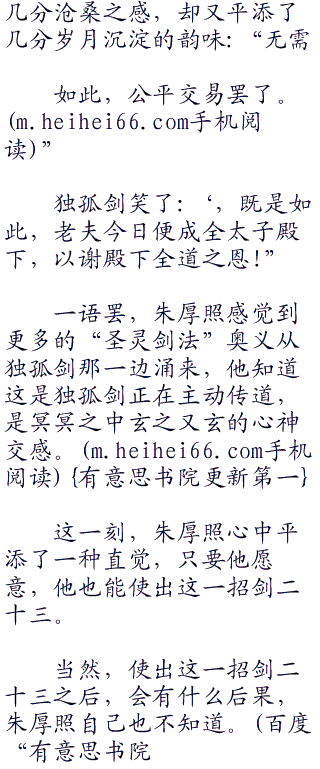 几分沧桑之感，却又平添了
几分岁月沉淀的韵味：“无需
如此，公平交易罢了。
(m.heihei66.com手机阅
读)”
独孤剑笑了：‘，既是如
此，老夫今日便成全太子殿
下，以谢殿下全道之恩!”
一语罢，朱厚照感觉到
更多的“圣灵剑法”奥义从
独孤剑那一边涌来，他知道
这是独孤剑正在主动传道，
是冥冥之中玄之又玄的心神
交感。(m.heihei66.com手机
阅读){有意思书院更新第一}
这一刻，朱厚照心中平
添了一种直觉，只要他愿
意，他也能使出这一招剑二
十三。
当然，使出这一招剑二
十三之后，会有什么后果，
朱厚照自己也不知道。(百度
“有意思书院